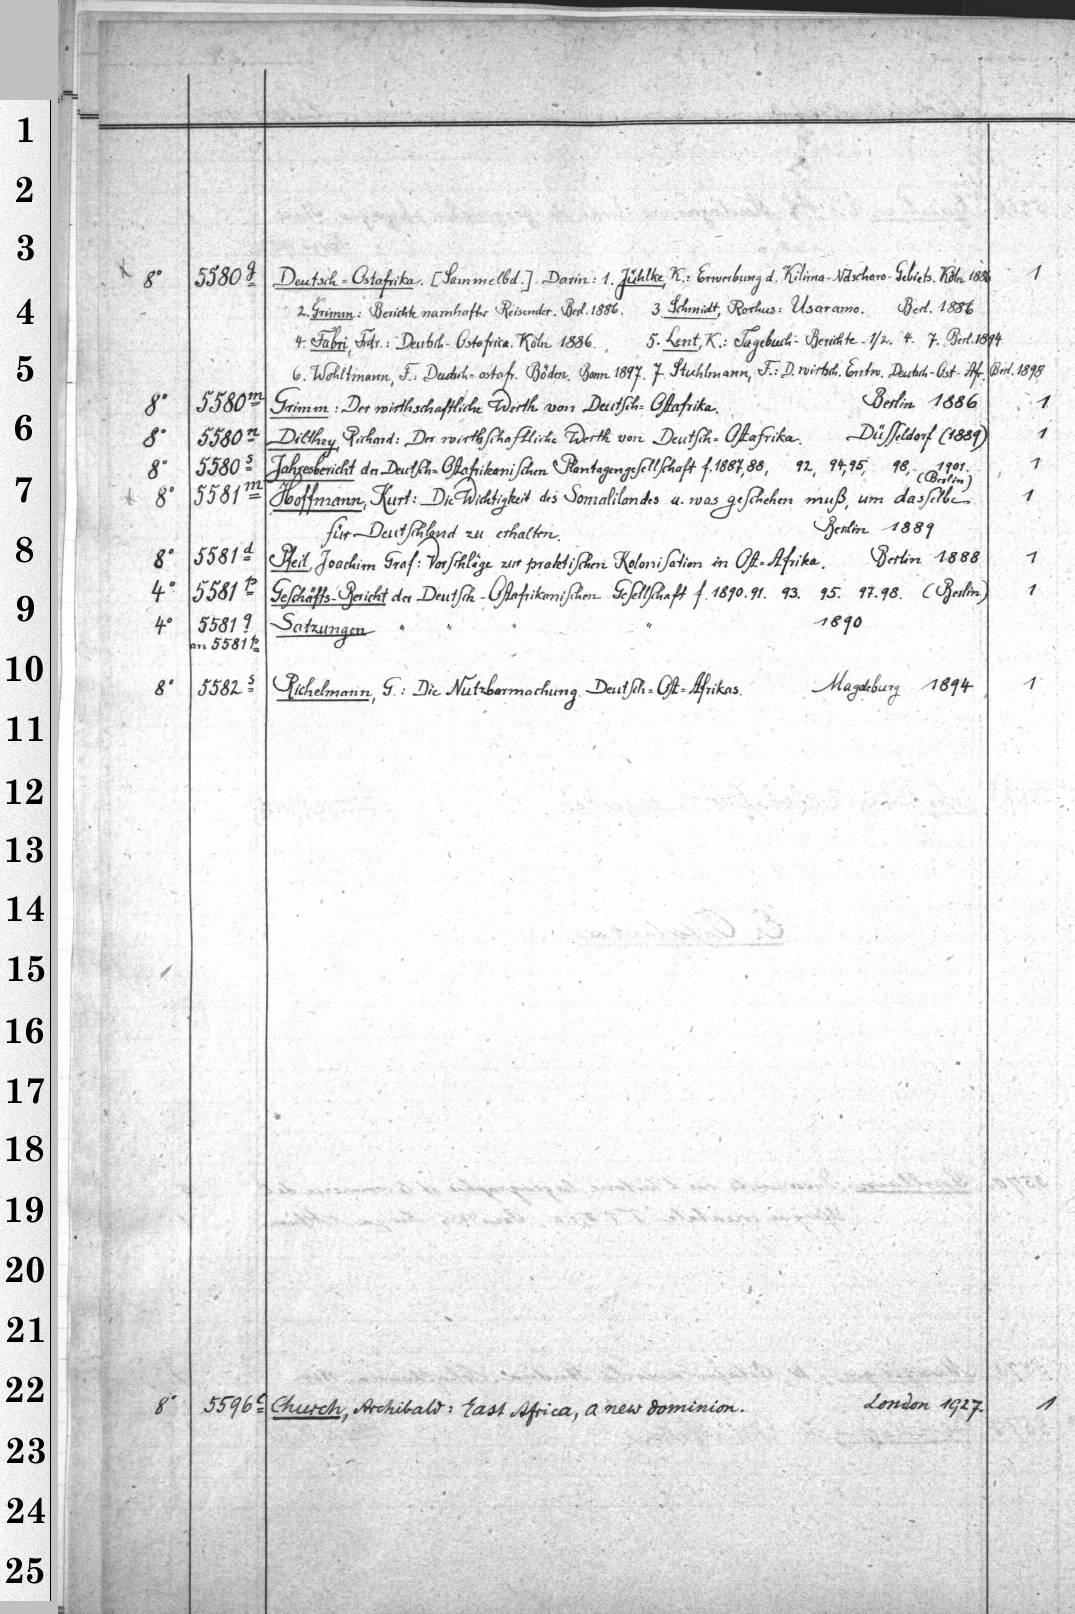 1
2
3
8° 5580 g Deutsch=Ostafrika. [Sammelbd.] Darin: 1. Jühlke, K.: Erwerbung d. Kilima-Ndscharo-Gebiets. Köln 1886 1
4
2. Grimm: Berichte namhafter Reisender. Berl. 1886. 3 Schmidt, Rochus: Usaramo. Berl. 1886
4. Fabri, Frdr.: Deutsch-Ostafrica. Köln 1886. 5. Lent, K.: Tagebuch-Berichte. 1/2. 4. 7. Berl. 1894
5
6. Wohltmann, F.: Deutsch=ostafr. Böden. Bonn 1897. 7. Stuhlmann, F.: D. wirtsch. Entw. Deutsch-Ost-Afr. Berl. 1898
8° 5580 m Grimm: Der wirthschaftliche Werth von Deutsch=Ostafrika. Berlin 1886 1
6
8° 5580 n Dilthey, Richard: Der wirthschaftliche Werth von Deutsch=Ostafrika. Düsseldorf (1889) 1
8° 5580 s Jahresbericht der Deutsch=Ostafrikanischen Plantagengesellschaft f. 1887, 88, 92, 94, 95, 98, 1901. (Berlin) 1
7
8° 5581 m Hoffmann, Kurt: Die Wichtigkeit des Somalilandes u. was geschehen muß, um dasselbe 1
für Deutschland zu erhalten. Berlin 1889
8
8° 5581 d Pfeil, Joachim Graf: Vorschläge zur praktischen Kolonisation in Ost=Afrika. Berlin 1888 1
4° 5581 p Geschäfts-Bericht der Deutsch-Ostafrikanischen Gesellschaft f. 1890.91. 93. 95. 97.98. (Berlin) 1
9
4° 5581 q Satzungen " " " " 1890
an 5581 p
10
8° 5582 s Richelmann, G.: Die Nutzbarmachung Deutsch=Ost=Afrikas. Magdeburg 1894 1
11
12
13
14
15
16
17
18
19
20
21
22
8° 5596 c Church, Archibald: East Africa, a new dominion. London 1927. 1
23
24
25